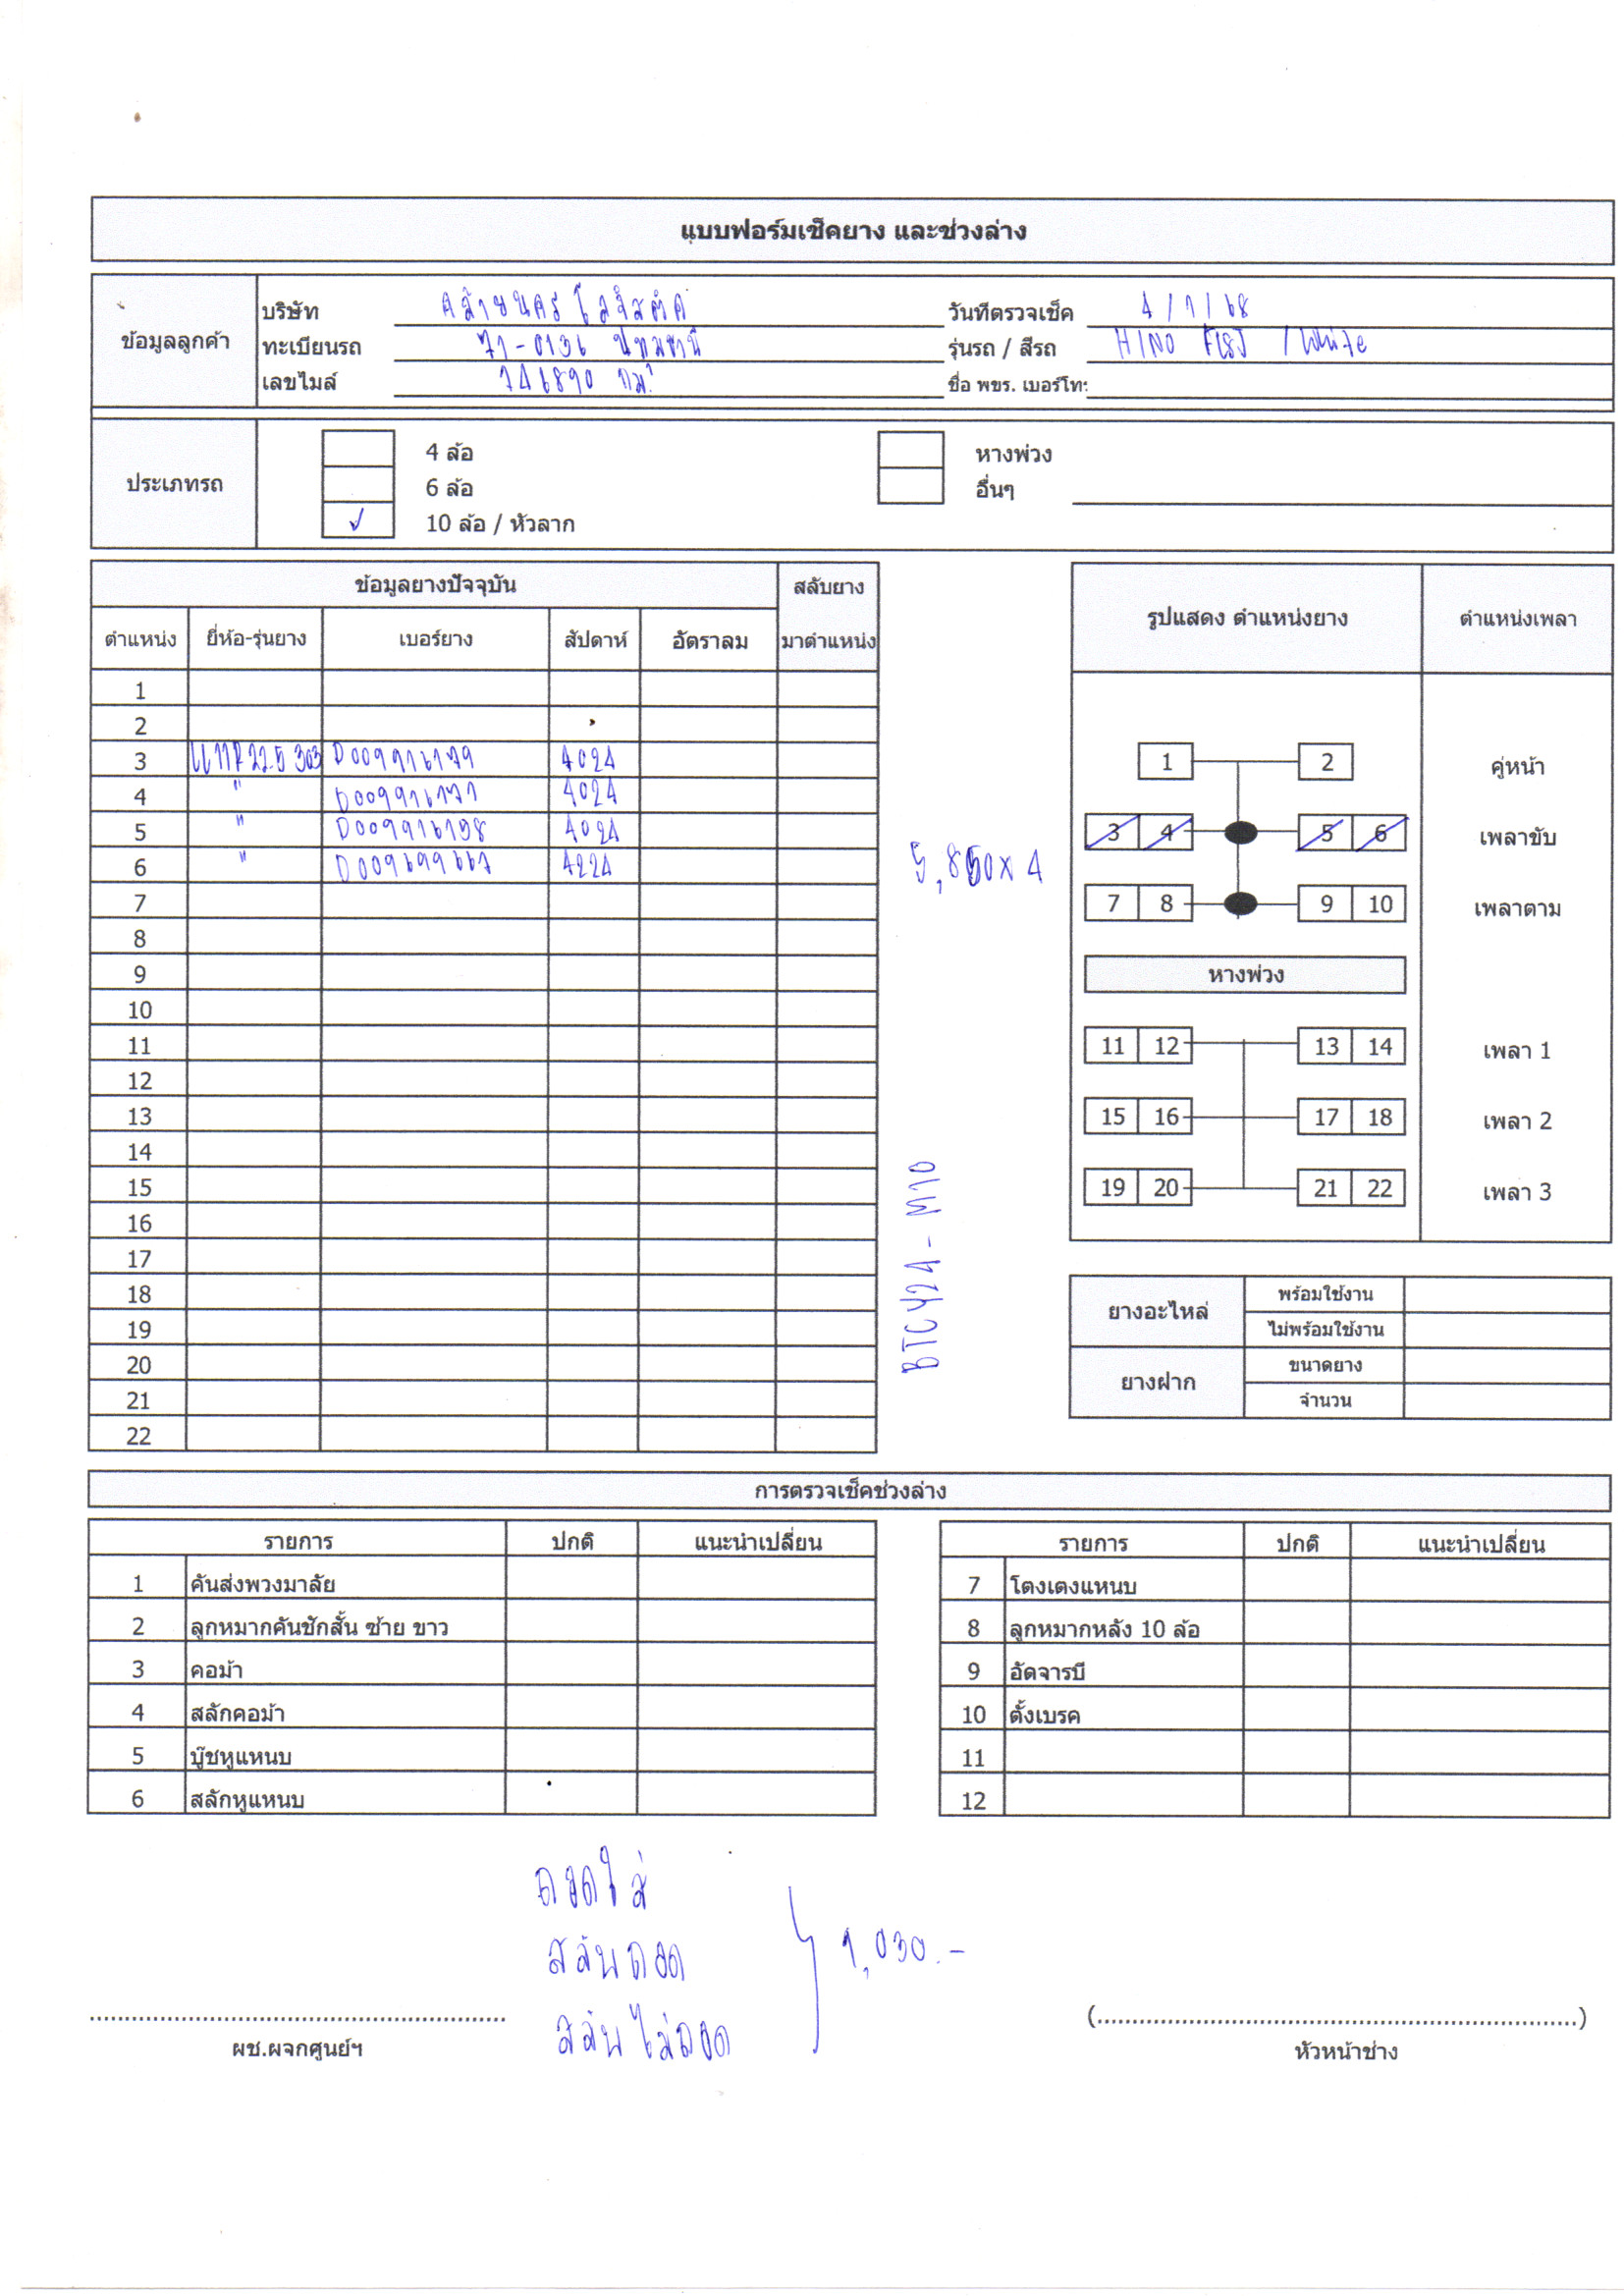 แบบฟอร์มเช็คยาง และช่วงล่าง
ข้อมูลลูกค้า
บริษัท คล้ายนคร โลจิสติค วันที่ตรวจเช็ค 4/1/68
ทะเบียนรถ 71-0136 ปทุมธานี รุ่นรถ / สีรถ HINO / White
เลขไมล์ 746890 กม. ชื่อ พขร. เบอร์โทร
ประเภทรถ
4 ล้อ หางพ่วง
6 ล้อ อื่นๆ
✓ 10 ล้อ / หัวลาก
ข้อมูลยางปัจจุบัน สลับยาง
ตำแหน่ง ยี่ห้อ-รุ่นยาง เบอร์ยาง สัปดาห์ อัตราลม มาตำแหน่ง
1
2
3 11R22.5 303 4024
4 " 4024
5 " 4024
6 " 4224
7
8
9
10
11
12
13
14
15
16
17
18
19
20
21
22
5,850x4
BTCY24-M10
รูปแสดง ตำแหน่งยาง ตำแหน่งเพลา
1 2 คู่หน้า
3 4 5 6 เพลาขับ
7 8 9 10 เพลาตาม
หางพ่วง
11 12 13 14 เพลา 1
15 16 17 18 เพลา 2
19 20 21 22 เพลา 3
ยางอะไหล่ พร้อมใช้งาน
ไม่พร้อมใช้งาน
ยางฝาก ขนาดยาง
จำนวน
การตรวจเช็คช่วงล่าง
รายการ ปกติ แนะนำเปลี่ยน
1 คันส่งพวงมาลัย
2 ลูกหมากคันชักสั้น ซ้าย ขาว
3 คอม้า
4 สลักคอม้า
5 บู๊ชหูแหนบ
6 สลักหูแหนบ
รายการ ปกติ แนะนำเปลี่ยน
7 โตงเตงแหนบ
8 ลูกหมากหลัง 10 ล้อ
9 อัดจารบี
10 ตั้งเบรค
11
12
ถอดใส่
สลับถอด
สลับไม่ถอด
1,030.-
ผช.ผจกศูนย์ฯ
(..........)
หัวหน้าช่าง